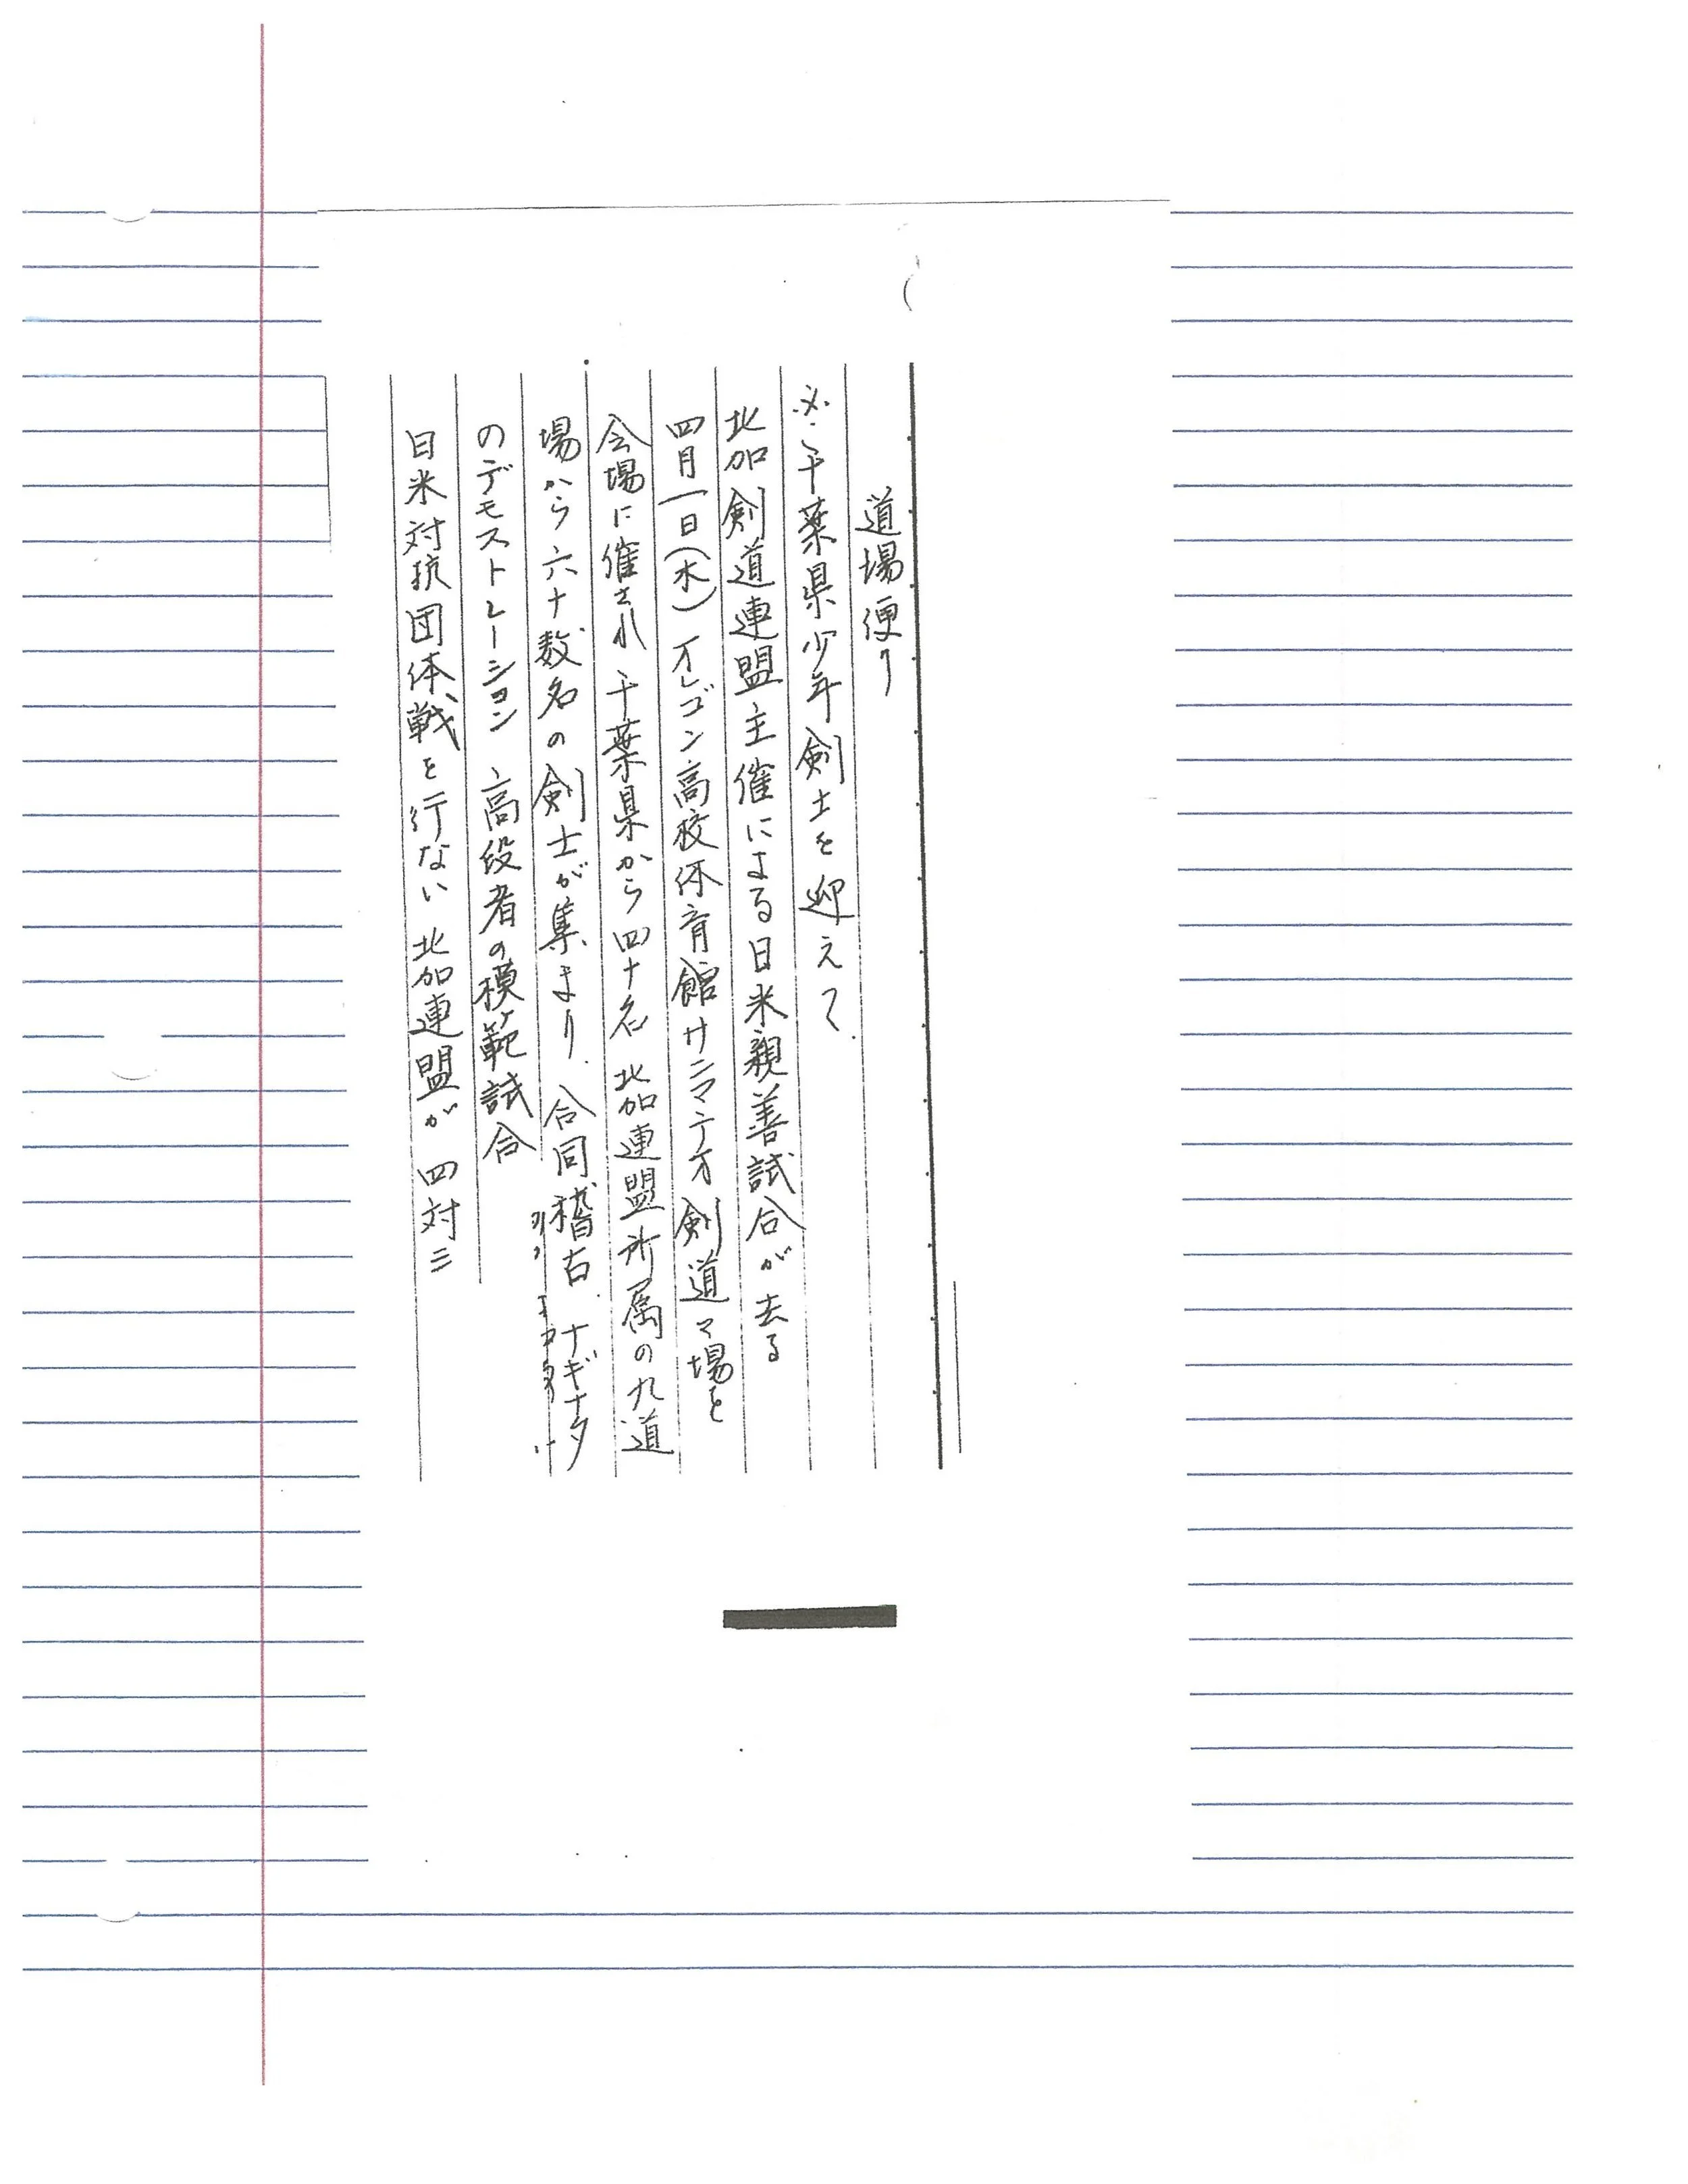 道場便り
※千葉県少年剣士を迎えて
北加剣道連盟主催による日米親善試合が去る
四月一日(水)オレゴン高校体育館サンマテオ剣道々場を
会場に催され 千葉県から四十名 北加連盟所属の九道
場から六十数名の剣士が集まり 合同稽古 ナギナタ
のデモストレーション 高段者の模範試合
日米対抗団体戦を行ない 北加連盟が 四対三